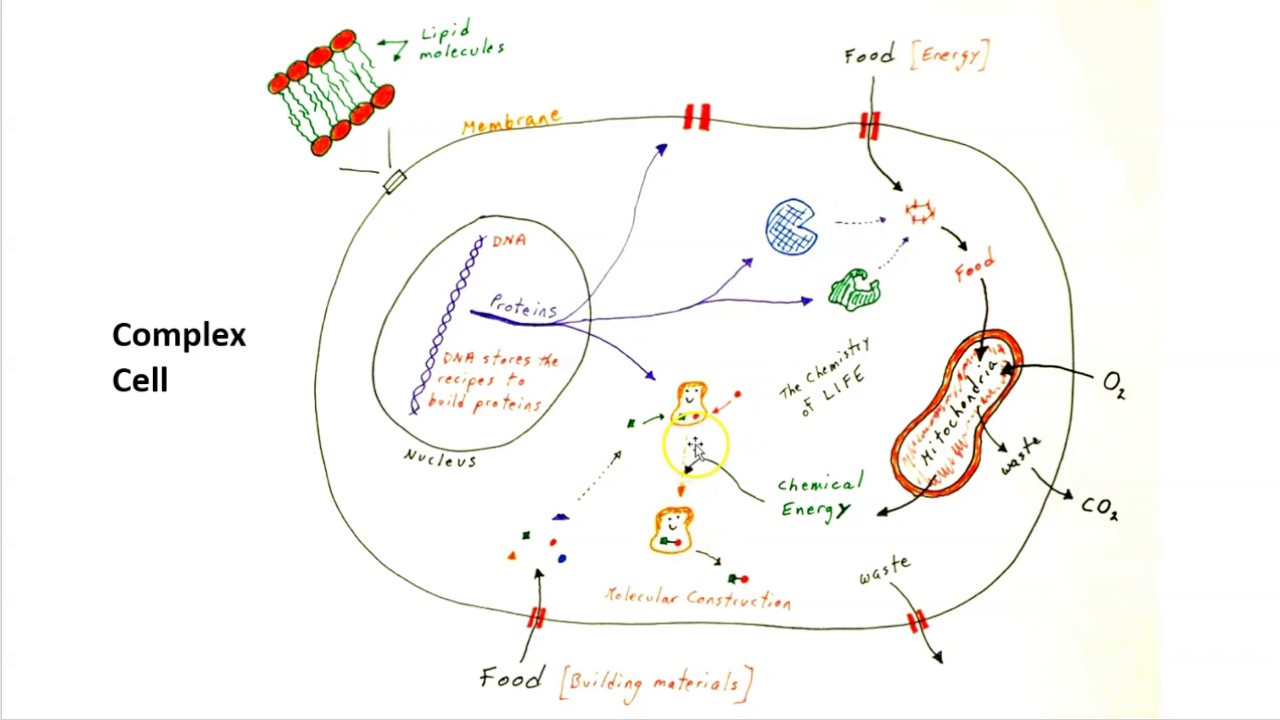 Lipid
molecules
Food [Energy]
Membrane
DNA
Proteins
DNA stores the
recipes to
build proteins
Nucleus
Food
The Chemistry
of LIFE
Mitochondria
O₂
waste
CO₂
Chemical
Energy
waste
Molecular Construction
Food [Building materials]
Complex
Cell